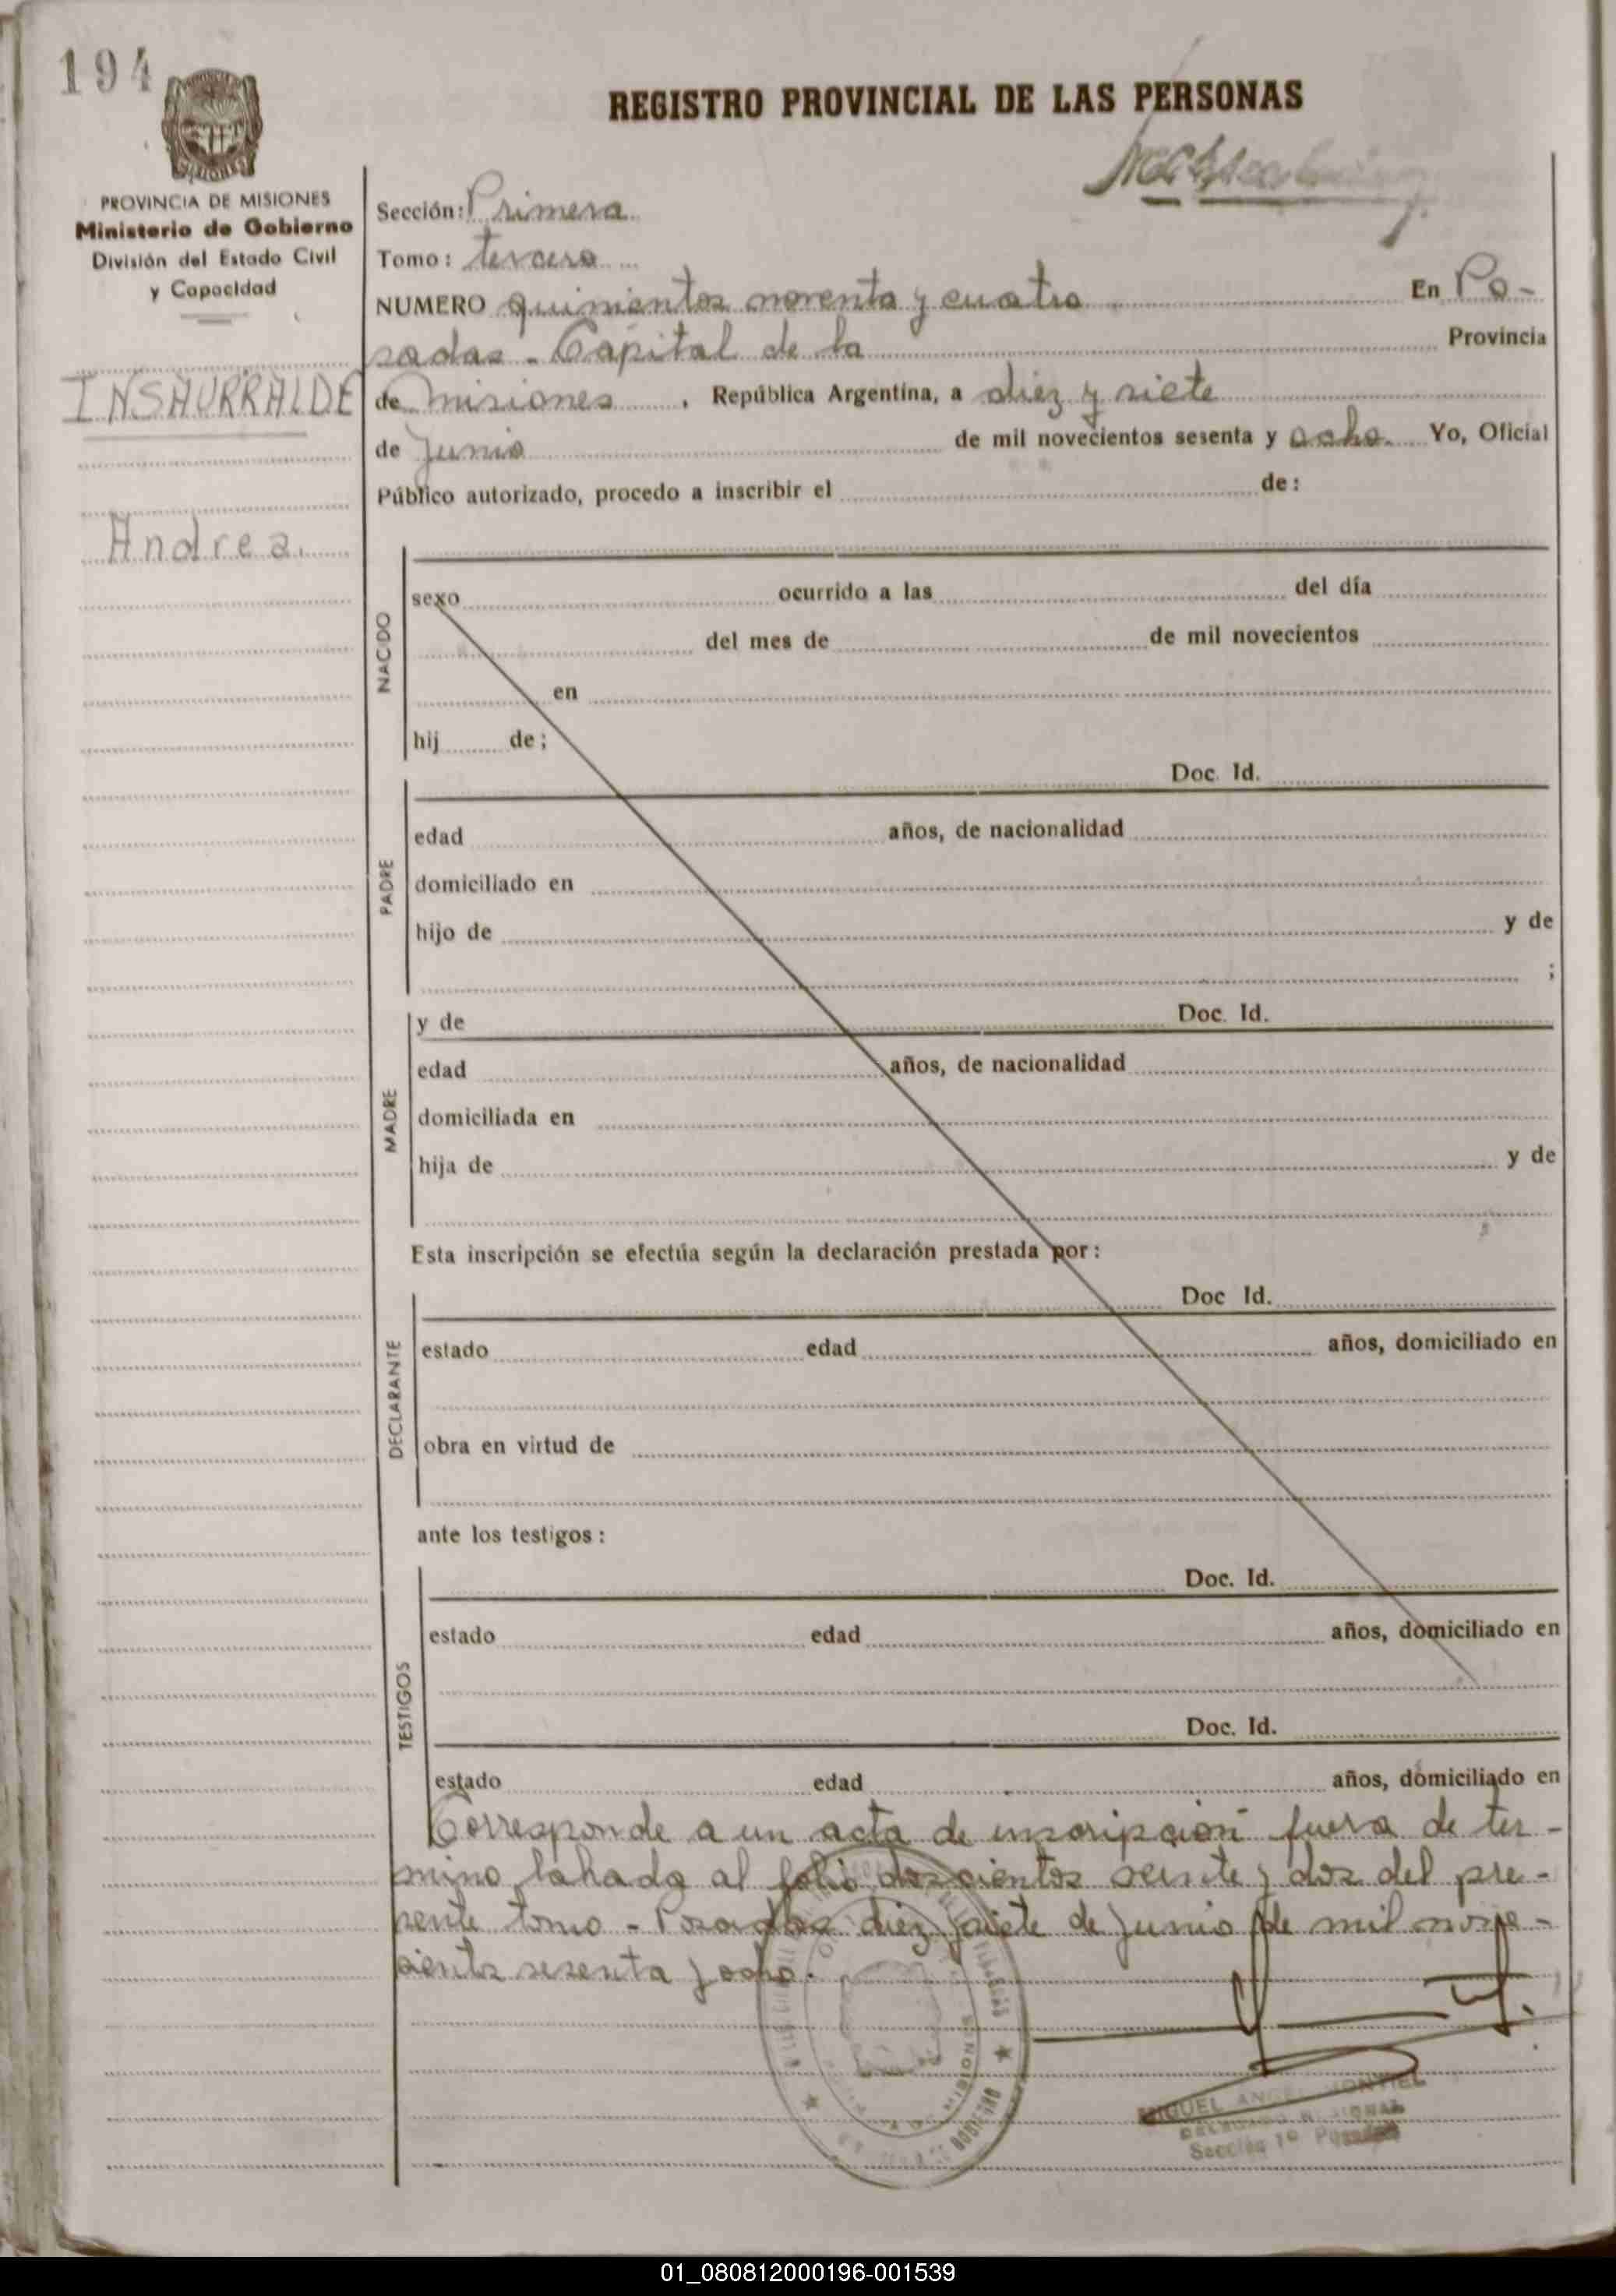 194
REGISTRO PROVINCIAL DE LAS PERSONAS
PROVINCIA DE MISIONES
Ministerio de Gobierno
División del Estado Civil
y Capacidad
INSAURRALDE
Andrea.
Sección: Primera
Tomo: tercero
NUMERO quinientos noventa y cuatro En Po-
sadas - Capital de la Provincia
de misiones, República Argentina, a diez y siete
de junio de mil novecientos sesenta y ocho. Yo, Oficial
Público autorizado, procedo a inscribir el de:
NACIDO
sexo ocurrido a las del día
del mes de de mil novecientos
en
hij de;
PADRE
Doc. Id.
edad años, de nacionalidad
domiciliado en
hijo de y de
;
MADRE
y de Doc. Id.
edad años, de nacionalidad
domiciliada en
hija de y de
Esta inscripción se efectúa según la declaración prestada por:
DECLARANTE
Doc Id.
estado edad años, domiciliado en
obra en virtud de
ante los testigos:
TESTIGOS
Doc. Id.
estado edad años, domiciliado en
Doc. Id.
estado edad años, domiciliado en
Corresponde a un acta de inscripcion fuera de ter-
mino labrada al folio doscientos veinte y dos del pre-
sente tomo - Posadas diez y siete de junio de mil nove-
cientos sesenta y ocho.
MIGUEL ANGEL MONTIEL
DELEGADO
Sección 1º Posadas
MISIONES
GOBIERNO
01_080812000196-001539